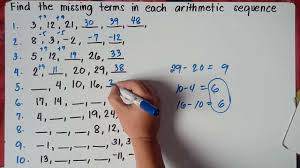 Find the missing terms in each arithmetic sequence
+9 +9
1. 3, 12, 21, 30, 39, 48,
-5 -5
2. 8, 3, -2, -7, -12,
+7 +7
3. 5, 12, 19, 26, 33
+9
4. 2, 11, 20, 29, 38
5. __, 4, 10, 16, 2
6. 17, 14, __, __,
7. __, __, __, 19, 24
8. __, __, __, 8, 12, 1
9. __, __, __, __, -31,
10. __, 13, __, __, -11,
29-20 = 9
10-4 = 6
16-10 = 6